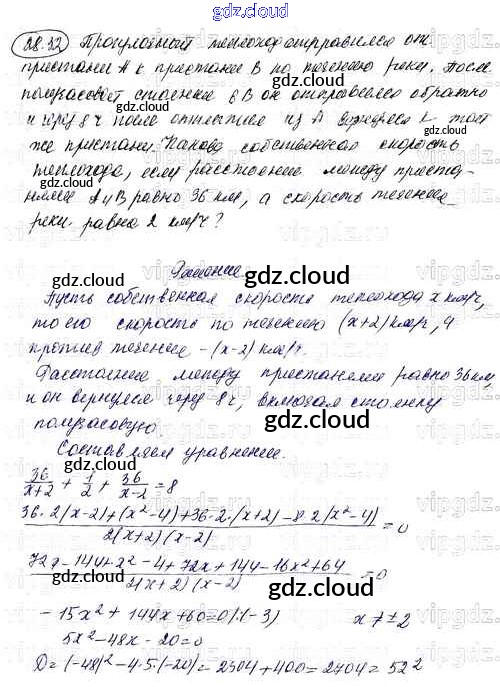 gdz.cloud
28.32 Прогулочный теплоход отправился от
пристани A к пристани B по течению реки. После
получасовой стоянки в B он отправился обратно
и через 8 ч после отплытия из A вернулся к той
же пристани. Какова собственная скорость
теплохода, если расстояние между приста-
нями A и B равно 36 км, а скорость течения
реки равна 2 км/ч?
Решение
Пусть собственная скорость теплохода x км/ч,
то его скорость по течению (x+2) км/ч, а
против течения - (x-2) км/ч.
Расстояние между пристанями равно 36 км
и он вернулся через 8 ч, включая стоянку
получасовую.
Составляем уравнение.
36/(x+2) + 1/2 + 36/(x-2) = 8
(36·2(x-2)+(x²-4)+36·2·(x+2)-8·2(x²-4))/(2(x+2)(x-2)) = 0
(72x-144+x²-4+72x+144-16x²+64)/(2(x+2)(x-2)) = 0
-15x²+144x+60=0 |:(-3) x≠±2
5x²-48x-20=0
D=(-48)²-4·5·(-20)=2304+400=2704=52²